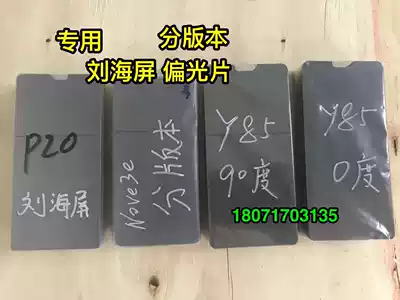 专用
分版本
刘海屏 偏光片
P20
刘海屏
Nove3e
分版本
Y85
90度
Y85
0度
18071703135